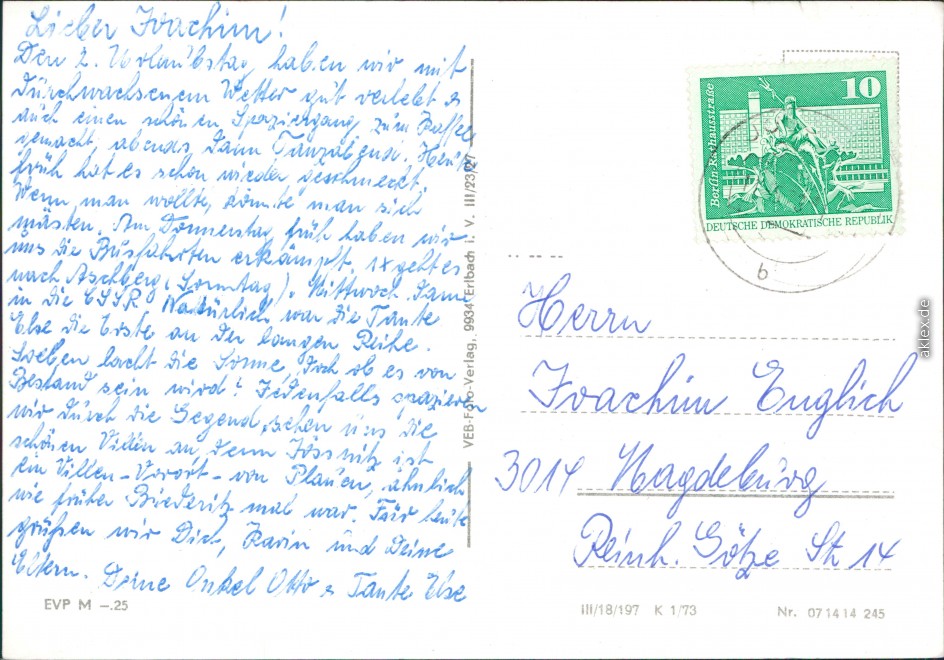 Lieber Joachim!
Den 2. Urlaubstag haben wir mit
durchwachsenem Wetter gut verlebt &
auch einen schönen Spaziergang zum Kaffee
gemacht, abends dann Tanzabend. Heut
früh hat es schon wieder geschmeckt.
Wenn man wollte, könnte man sich
mästen. Am Donnerstag früh haben wir
uns die Busfahrten erkämpft. 1x geht es
nach Aschberg (Sonntag) & Mittwoch dann
in die CSSR. Natürlich war die Tante
Else die Erste an der langen Reihe.
Soeben lacht die Sonne, doch ob es von
Bestand sein wird? Jedenfalls spazieren
wir durch die Gegend, sehen uns die
schönen Villen an, denn Jössnitz ist
ein Villen-Vorort von Plauen, ähnlich
wie früher Biederitz mal war. Für heute
grüßen wir Dich, Karin und Deine
Eltern. Deine Onkel Otto & Tante Else
EVP M -.25
VEB-Foto-Verlag, 9934 Erlbach i. V. III/23/27
10
Berlin-Rathausstraße
DEUTSCHE DEMOKRATISCHE REPUBLIK
b
Herrn
Joachim Englich
3014 Magdeburg
Reinh. Götze Str. 14
III/18/197 K 1/73
Nr. 071414 245
aklex.de